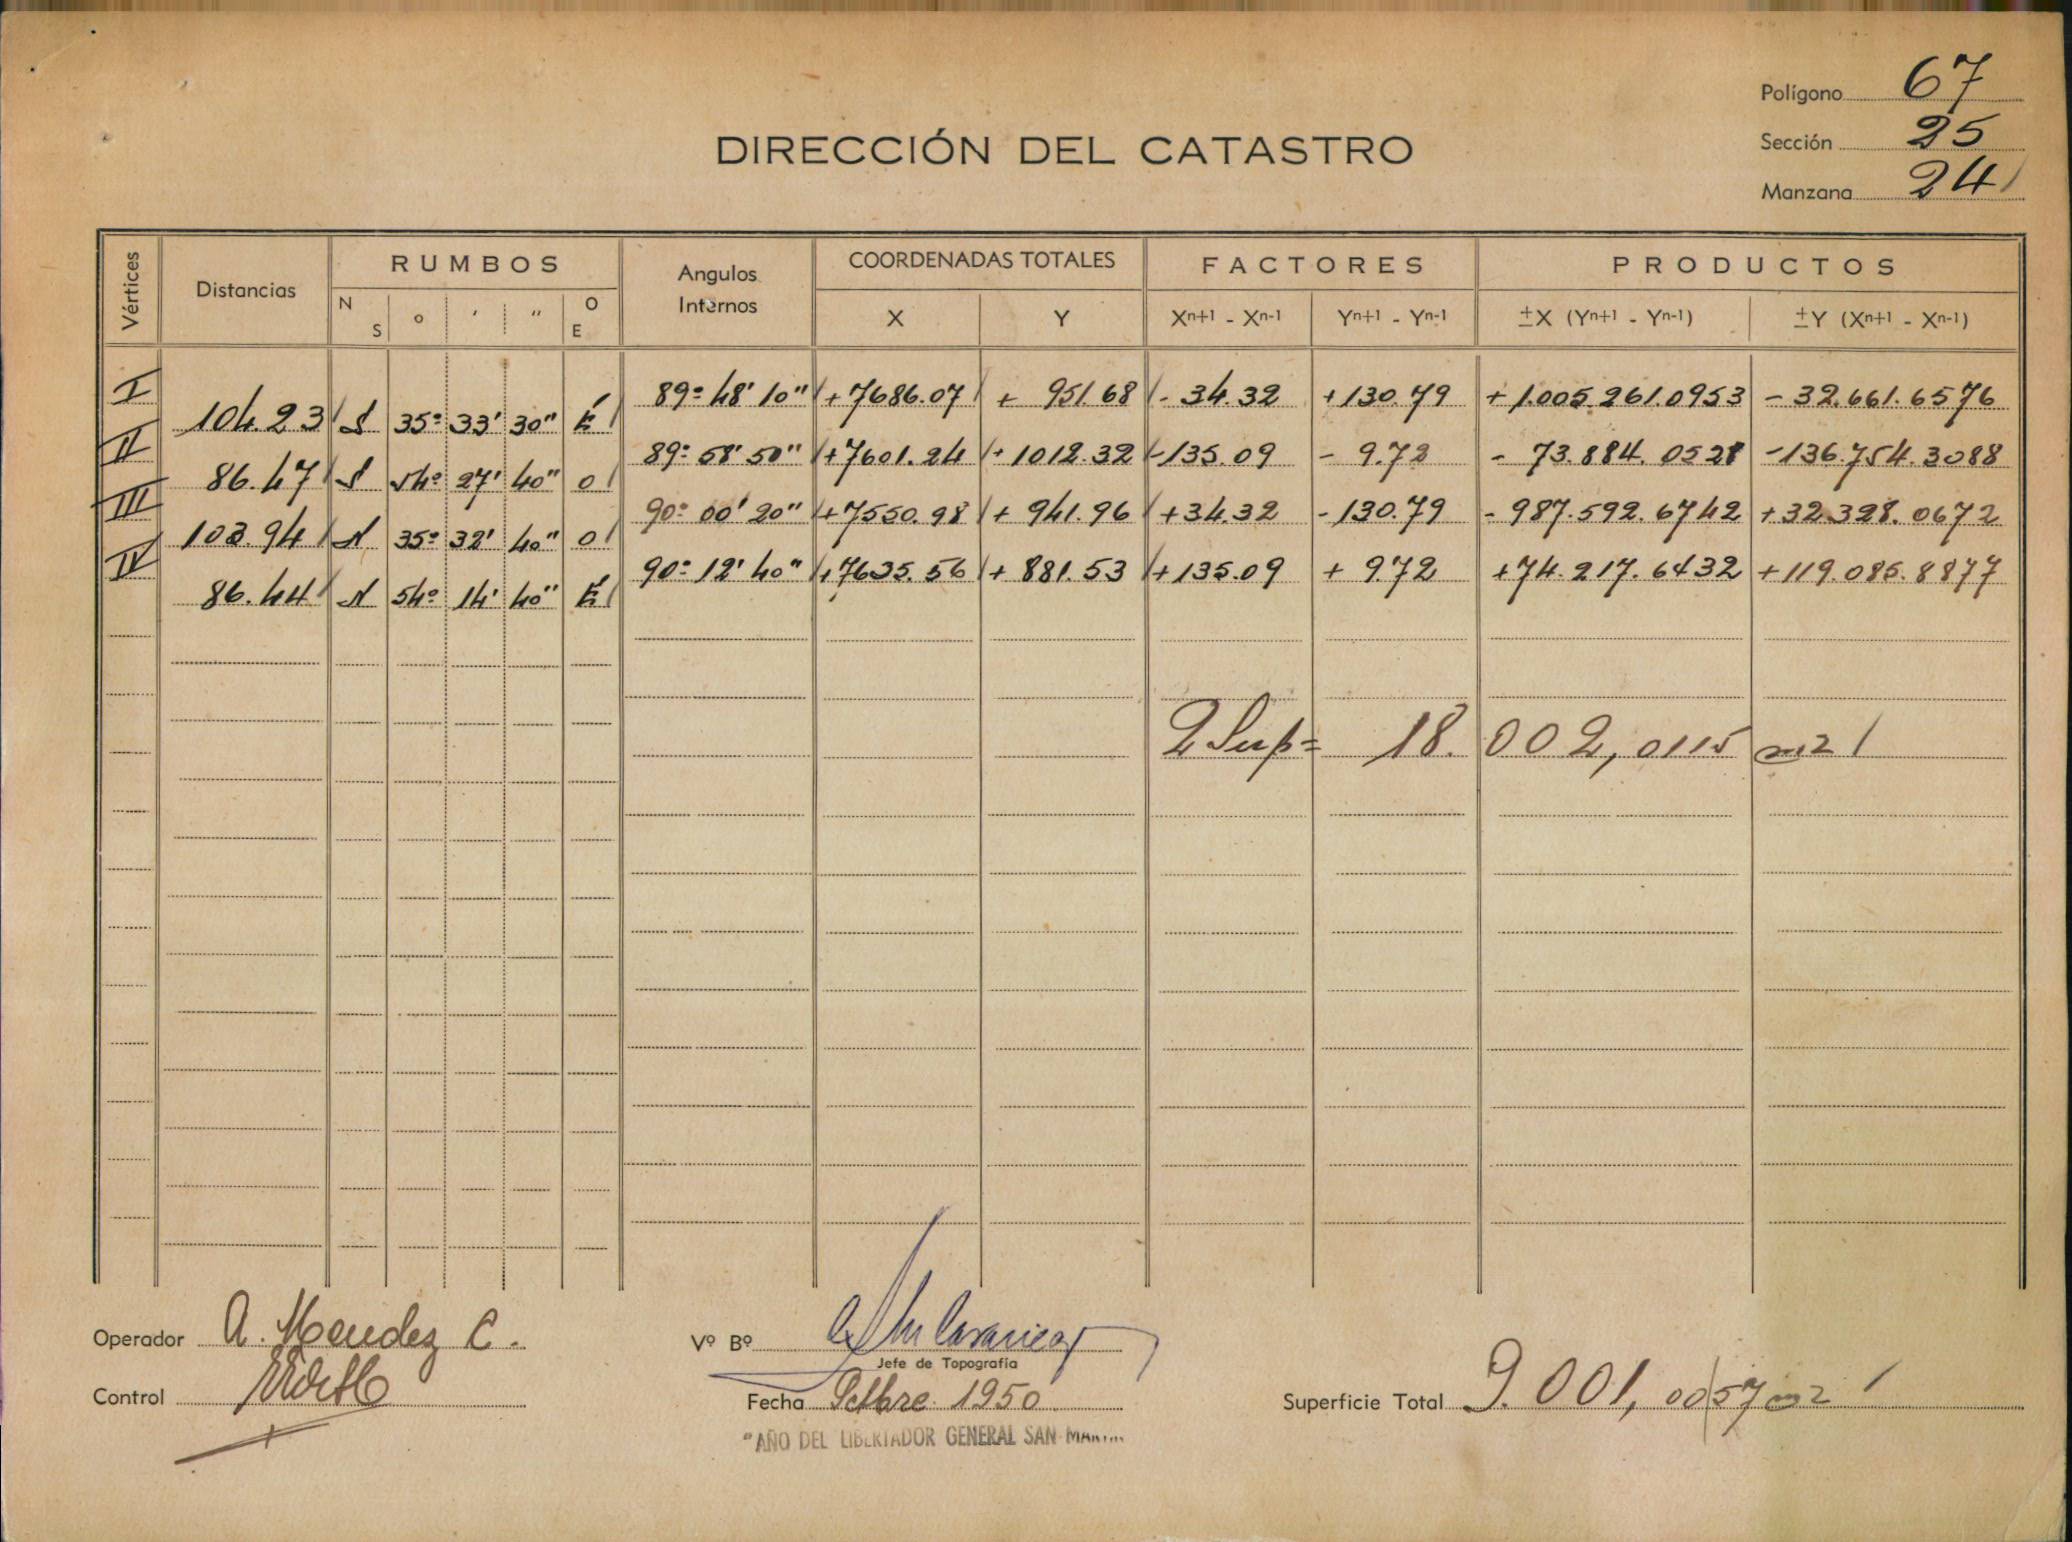 Polígono 67
Sección 25
Manzana 24
DIRECCIÓN DEL CATASTRO
Vértices Distancias RUMBOS Angulos Internos COORDENADAS TOTALES FACTORES PRODUCTOS
N S o ' " O E X Y Xn+1 - Xn-1 Yn+1 - Yn-1 ±X (Yn+1 - Yn-1) ±Y (Xn+1 - Xn-1)
I 89º 48' 10" +7686.07 + 951.68 - 34.32 +130.79 +1.005.261.0953 - 32.661.6576
104.23 S 35º 33' 30" E
II 89º 58' 50" +7601.24 +1012.32 -135.09 - 9.72 - 73.884.0528 -136.754.3088
86.47 S 54º 27' 40" O
III 90º 00' 20" +7550.98 + 941.96 +34.32 -130.79 - 987.592.6742 +32.328.0672
103.94 N 35º 32' 40" O
IV 90º 12' 40" +7635.56 + 881.53 +135.09 + 9.72 +74.217.6432 +119.085.8877
86.44 N 54º 14' 40" E
2 Sup = 18.002,0115 m2
Operador A. Mendez C.
Control
Vº Bº
Jefe de Topografía
Fecha Setbre. 1950
"AÑO DEL LIBERTADOR GENERAL SAN MARTIN
Superficie Total 9.001,0057 m2